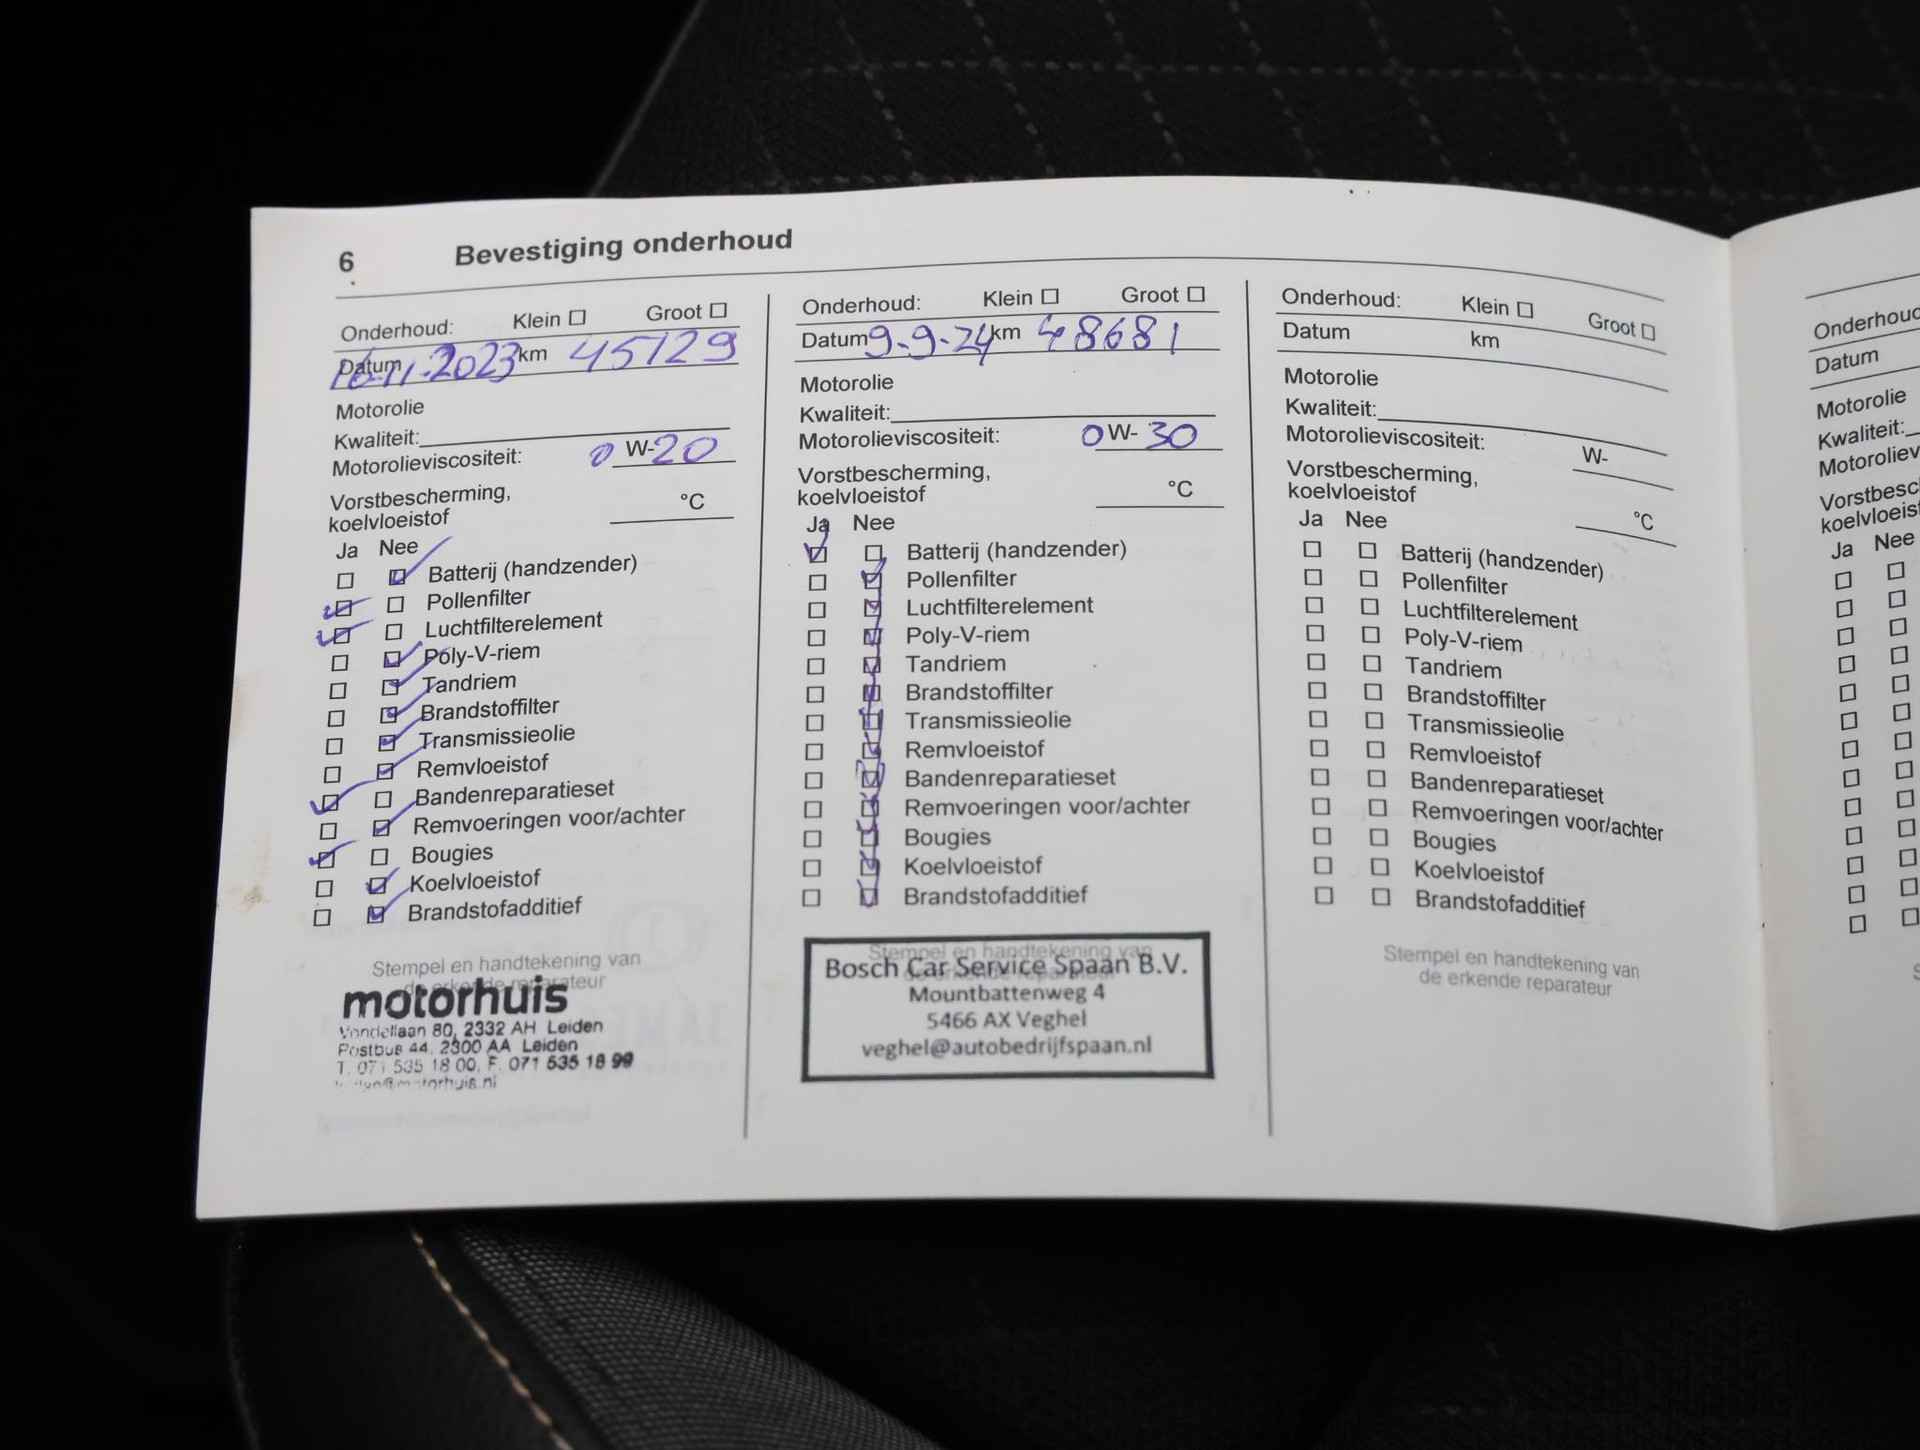 6 Bevestiging onderhoud
Onderhoud: Klein Groot
Datum 16-11-2023 km 45129
Motorolie
Kwaliteit:
Motorolieviscositeit: 0 W-20
Vorstbescherming,
koelvloeistof °C
Ja Nee
Batterij (handzender)
Pollenfilter
Luchtfilterelement
Poly-V-riem
Tandriem
Brandstoffilter
Transmissieolie
Remvloeistof
Bandenreparatieset
Remvoeringen voor/achter
Bougies
Koelvloeistof
Brandstofadditief
Stempel en handtekening van
de erkende reparateur
motorhuis
Vondellaan 80, 2332 AH Leiden
Postbus 44, 2300 AA Leiden
T. 071 535 18 00, F. 071 535 18 99
Onderhoud: Klein Groot
Datum 9-9-24 km 48681
Motorolie
Kwaliteit:
Motorolieviscositeit: 0 W-30
Vorstbescherming,
koelvloeistof °C
Ja Nee
Batterij (handzender)
Pollenfilter
Luchtfilterelement
Poly-V-riem
Tandriem
Brandstoffilter
Transmissieolie
Remvloeistof
Bandenreparatieset
Remvoeringen voor/achter
Bougies
Koelvloeistof
Brandstofadditief
Stempel en handtekening van
de erkende reparateur
Bosch Car Service Spaan B.V.
Mountbattenweg 4
5466 AX Veghel
veghel@autobedrijfspaan.nl
Onderhoud: Klein Groot
Datum km
Motorolie
Kwaliteit:
Motorolieviscositeit: W-
Vorstbescherming,
koelvloeistof °C
Ja Nee
Batterij (handzender)
Pollenfilter
Luchtfilterelement
Poly-V-riem
Tandriem
Brandstoffilter
Transmissieolie
Remvloeistof
Bandenreparatieset
Remvoeringen voor/achter
Bougies
Koelvloeistof
Brandstofadditief
Stempel en handtekening van
de erkende reparateur
Onderhoud
Datum
Motorolie
Kwaliteit:
Motoroliev
Vorstbesc
koelvloeist
Ja Nee